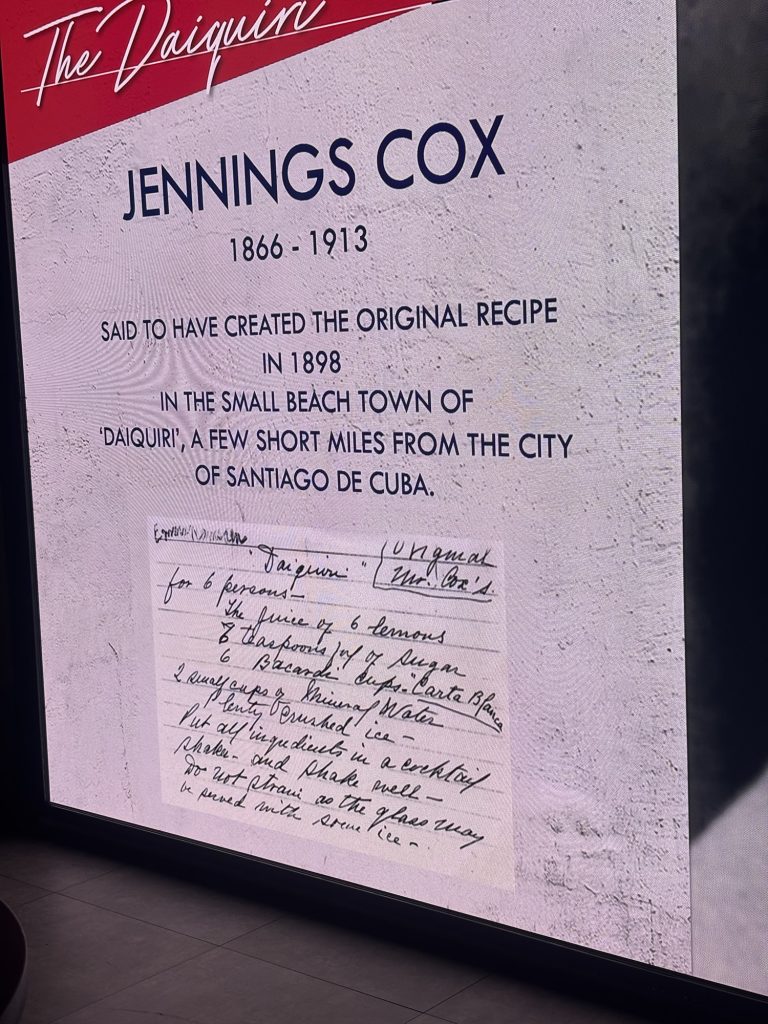 The Daiquiri
JENNINGS COX
1866 - 1913
SAID TO HAVE CREATED THE ORIGINAL RECIPE
IN 1898
IN THE SMALL BEACH TOWN OF
‘DAIQUIRI’, A FEW SHORT MILES FROM THE CITY
OF SANTIAGO DE CUBA.
"Daiquiri" Original
Mr. Cox's
for 6 persons—
The juice of 6 lemons
6 teaspoons full of sugar
6 Bacardi cups "Carta Blanca
2 small cups of Mineral Water
Plenty crushed ice—
Put all ingredients in a cocktail
shaker— and shake well—
Do not strain as the glass may
be served with some ice—.